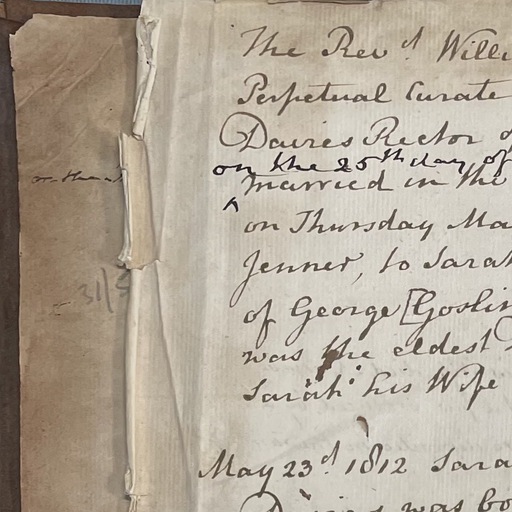 The Revd. Willi
Perpetual Curate
Davies Rector of
on the 25th day of
^ married in the
on Thursday Ma
Jenner, to Sarah
of George [Goslin
was the eldest
Sarah his Wife
31/5
May 23d. 1812 Sara
Davies was bo